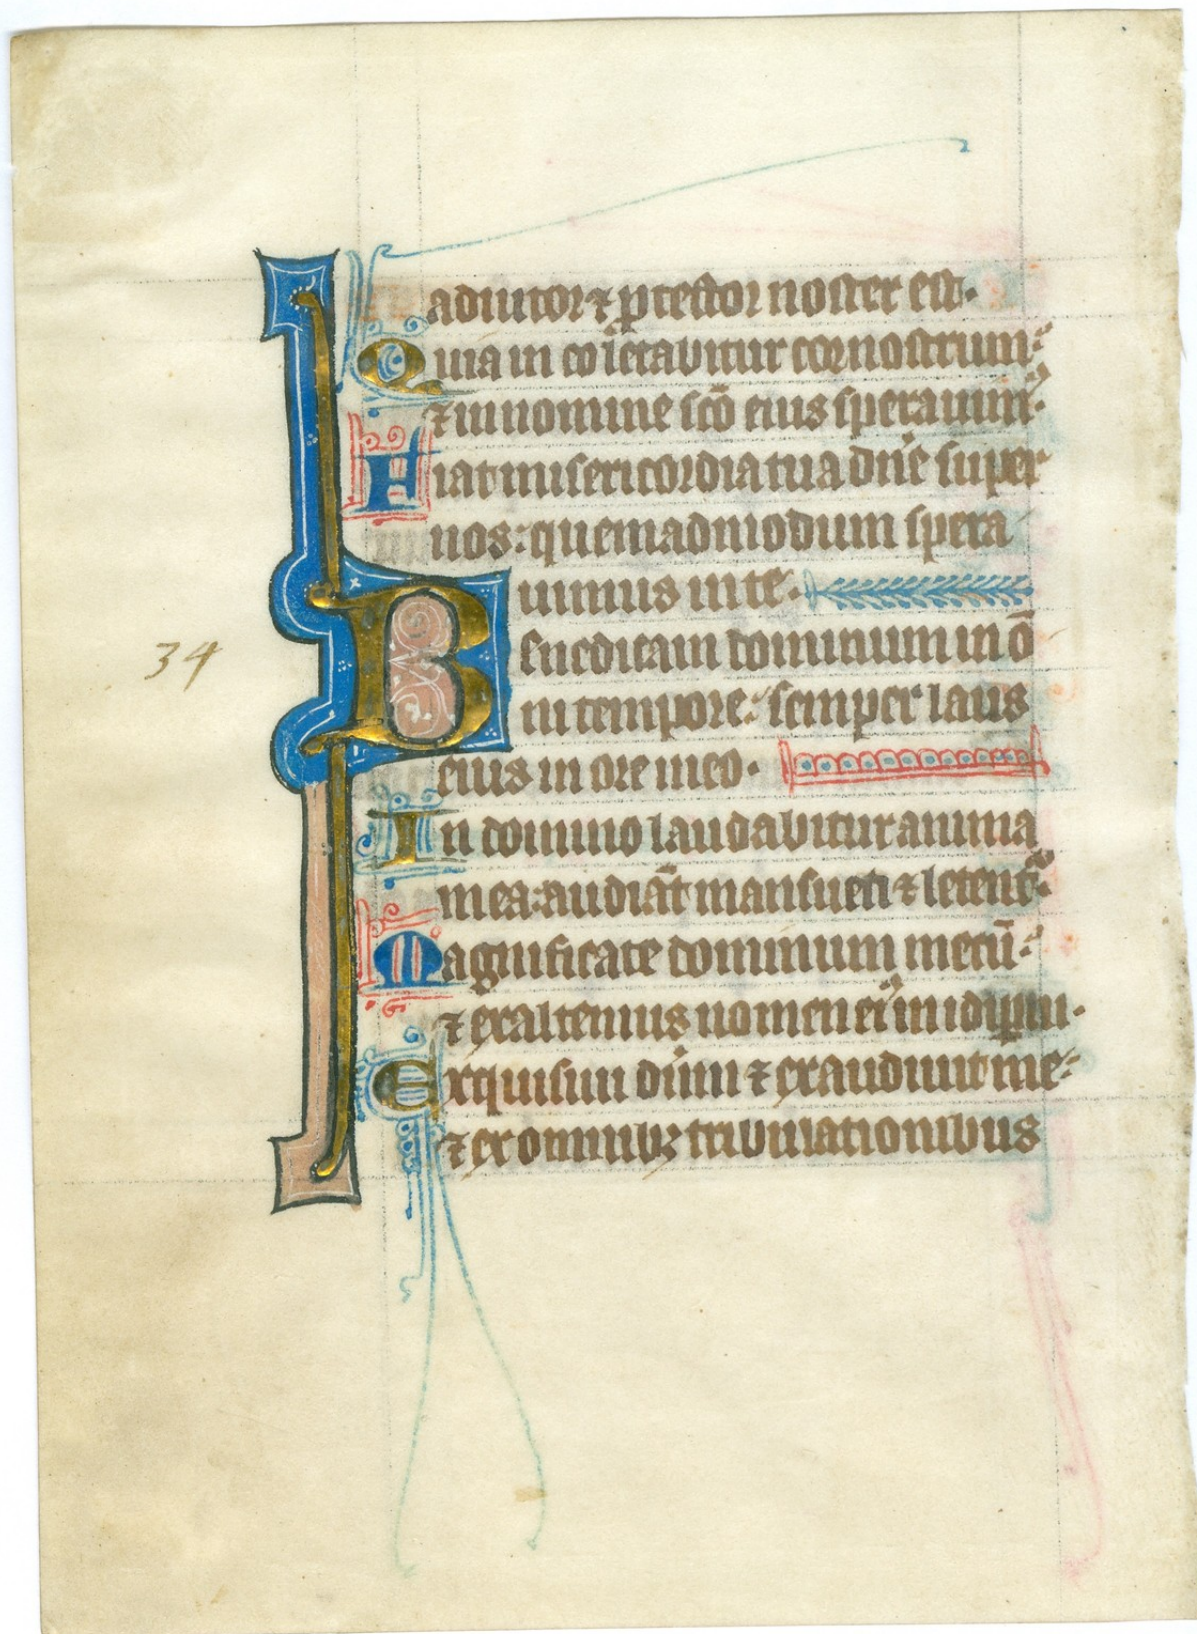 adiutor ⁊ ꝓtector noster est.
Quia in eo letabitur cor nostrum:
⁊ in nomine sc̄o eius sperauim᷒.
Fiat misericordia tua dn̄e super
nos: quemadmodum spera
uimus in te.
34
Benedicam dominum in o̅
ni tempore: semper laus
eius in ore meo.
In domino laudabitur anima
mea: audiāt mansueti ⁊ letent᷑.
Magnificate dominum mecū:
⁊ exaltemus nomen ei᷒ in idip̄m.
Exquisiui dūm ⁊ exaudiuit me:
⁊ ex omnibꝫ tribulationibus